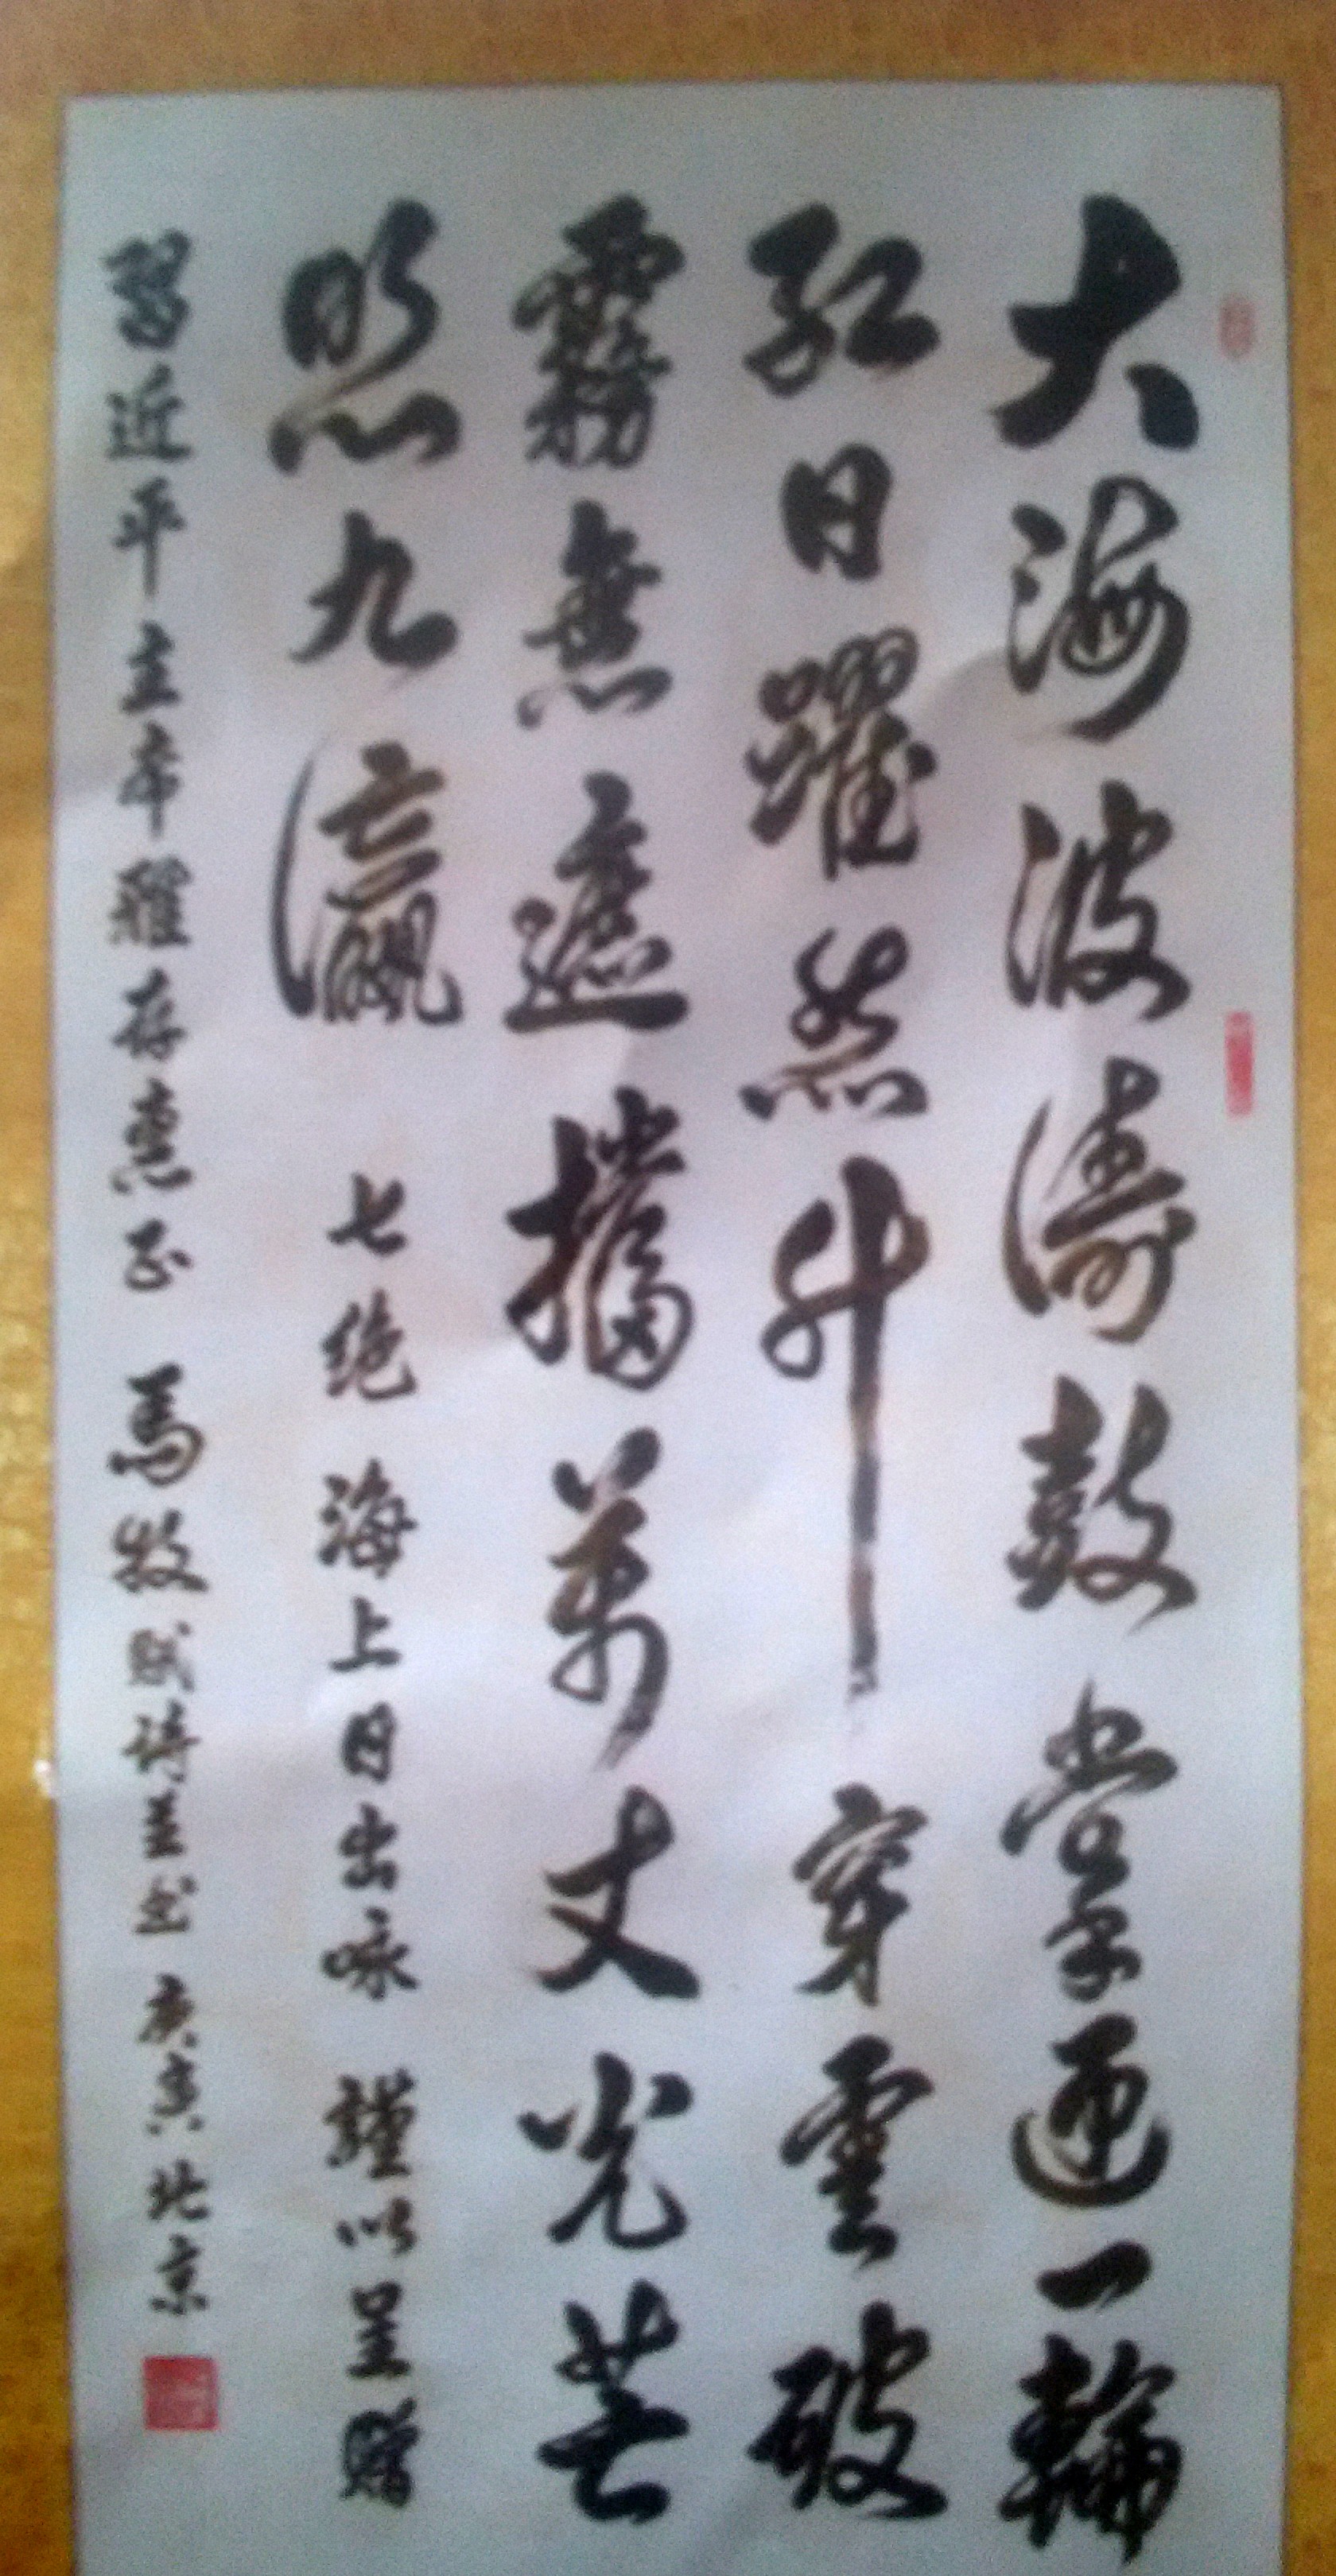 大海波濤鼓掌迎一輪
紅日躍然升穿雲破
霧無遮擋萬丈光芒
照九瀛 七绝 海上日出咏 謹以呈贈
習近平主席雅存惠正 馬牧賦詩並书 庚寅北京